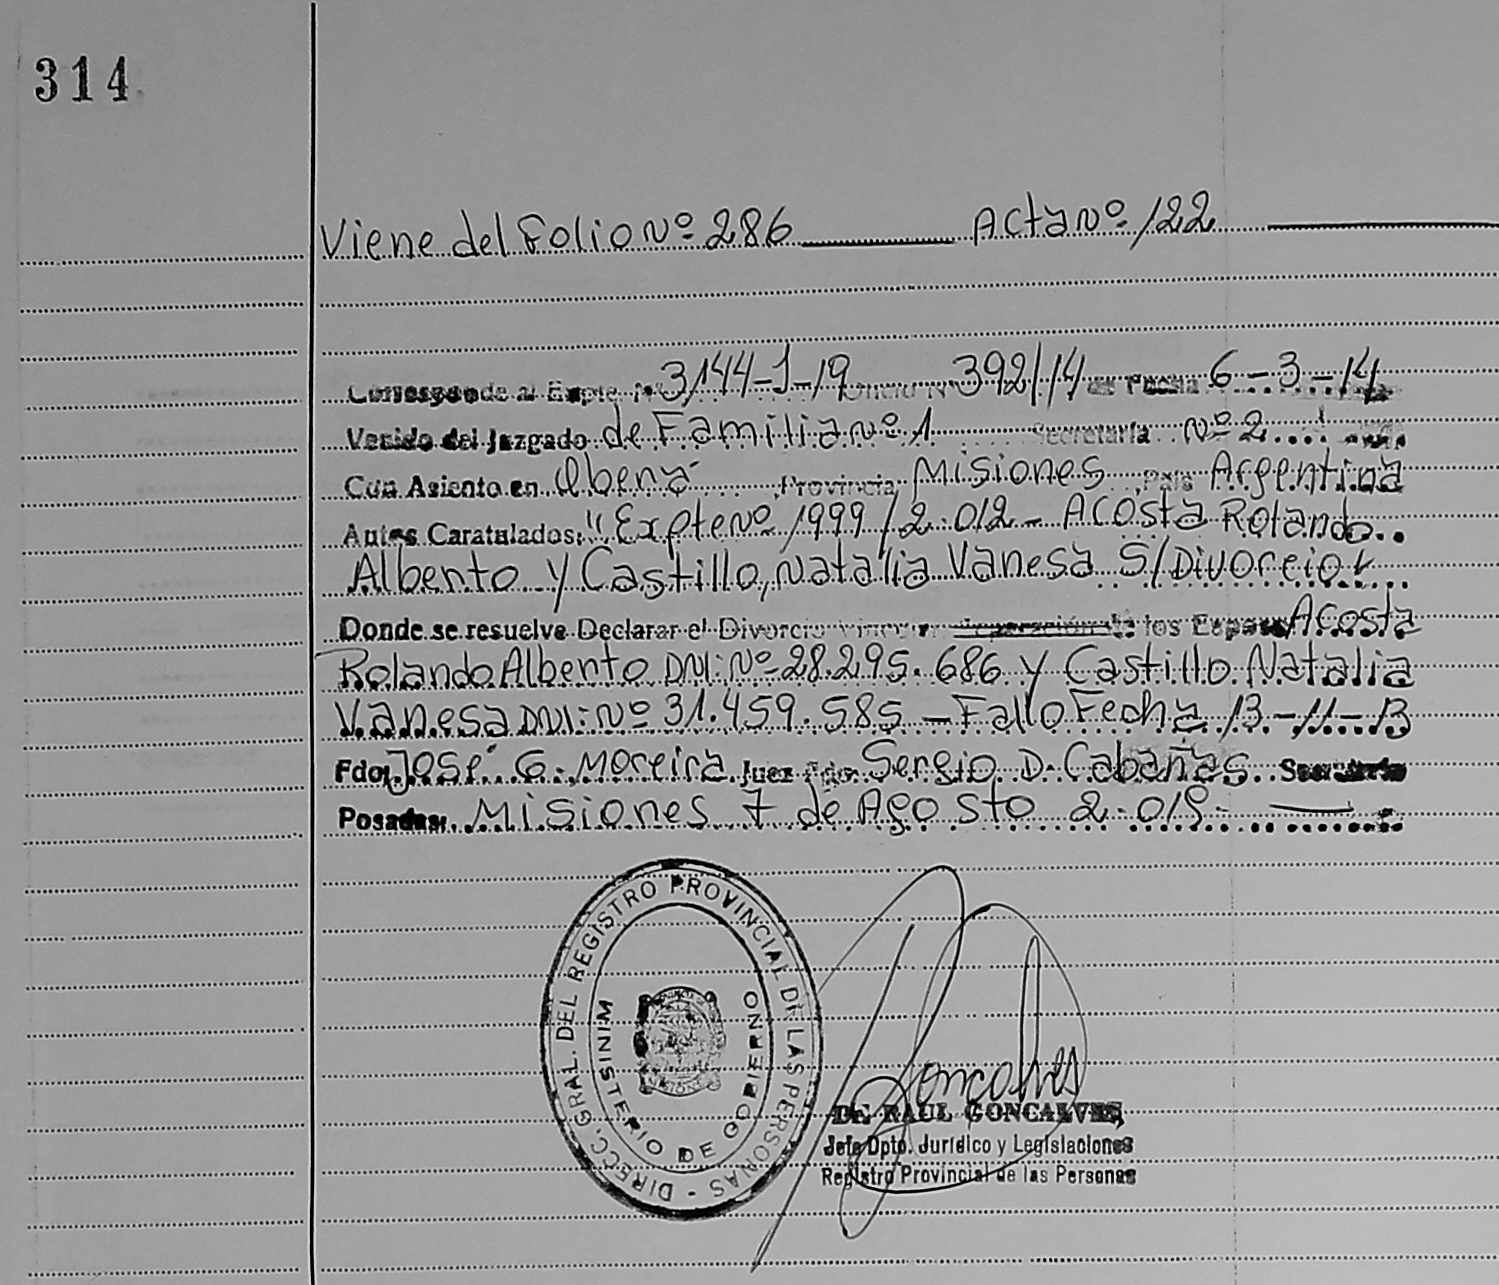 314
Viene del Folio Nº 286 Acta Nº 122
Corresponde al Expte. Nº 3144-J-19 Oficio Nº 392/14 de Fecha 6-3-14
Venido del Juzgado de Familia Nº 1 Secretaría Nº 2
Con Asiento en Oberá Provincia Misiones País Argentina
Autos Caratulados: "Expte Nº 1999/2.012 - Acosta Rolando
Alberto y Castillo, Natalia Vanesa S/Divorcio"
Donde se resuelve Declarar el Divorcio Vincular Separación de los Esposos Acosta
Rolando Alberto DNI: Nº 28.295.686 y Castillo Natalia
Vanesa DNI: Nº 31.459.585 - Fallo Fecha 13-11-13
Fdo. José G. Moreira Juez Fdo. Sergio D. Cabañas Secretario
Posadas, Misiones 7 de Agosto 2.019
DIRECC. GRAL. DEL REGISTRO PROVINCIAL DE LAS PERSONAS -
MINISTERIO DE GOBIERNO
MISIONES
Goncalves
Dr. RAUL GONCALVES
Jefe Dpto. Jurídico y Legislaciones
Registro Provincial de las Personas